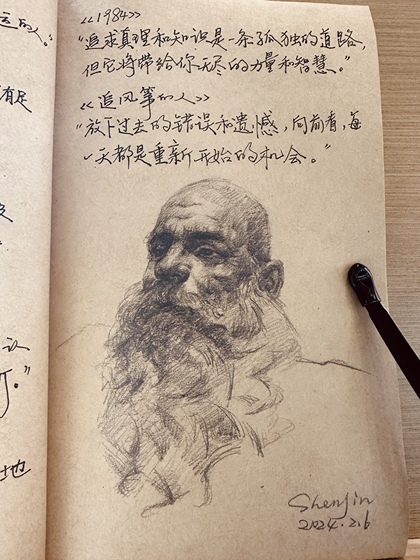 运的人。”
有足
认
了。”
地
《1984》
“追求真理和知识是一条孤独的道路，
但它将带给你无尽的力量和智慧。”
《追风筝的人》
“放下过去的错误和遗憾，向前看，每
一天都是重新开始的机会。”
Shenjin
2024.2.6